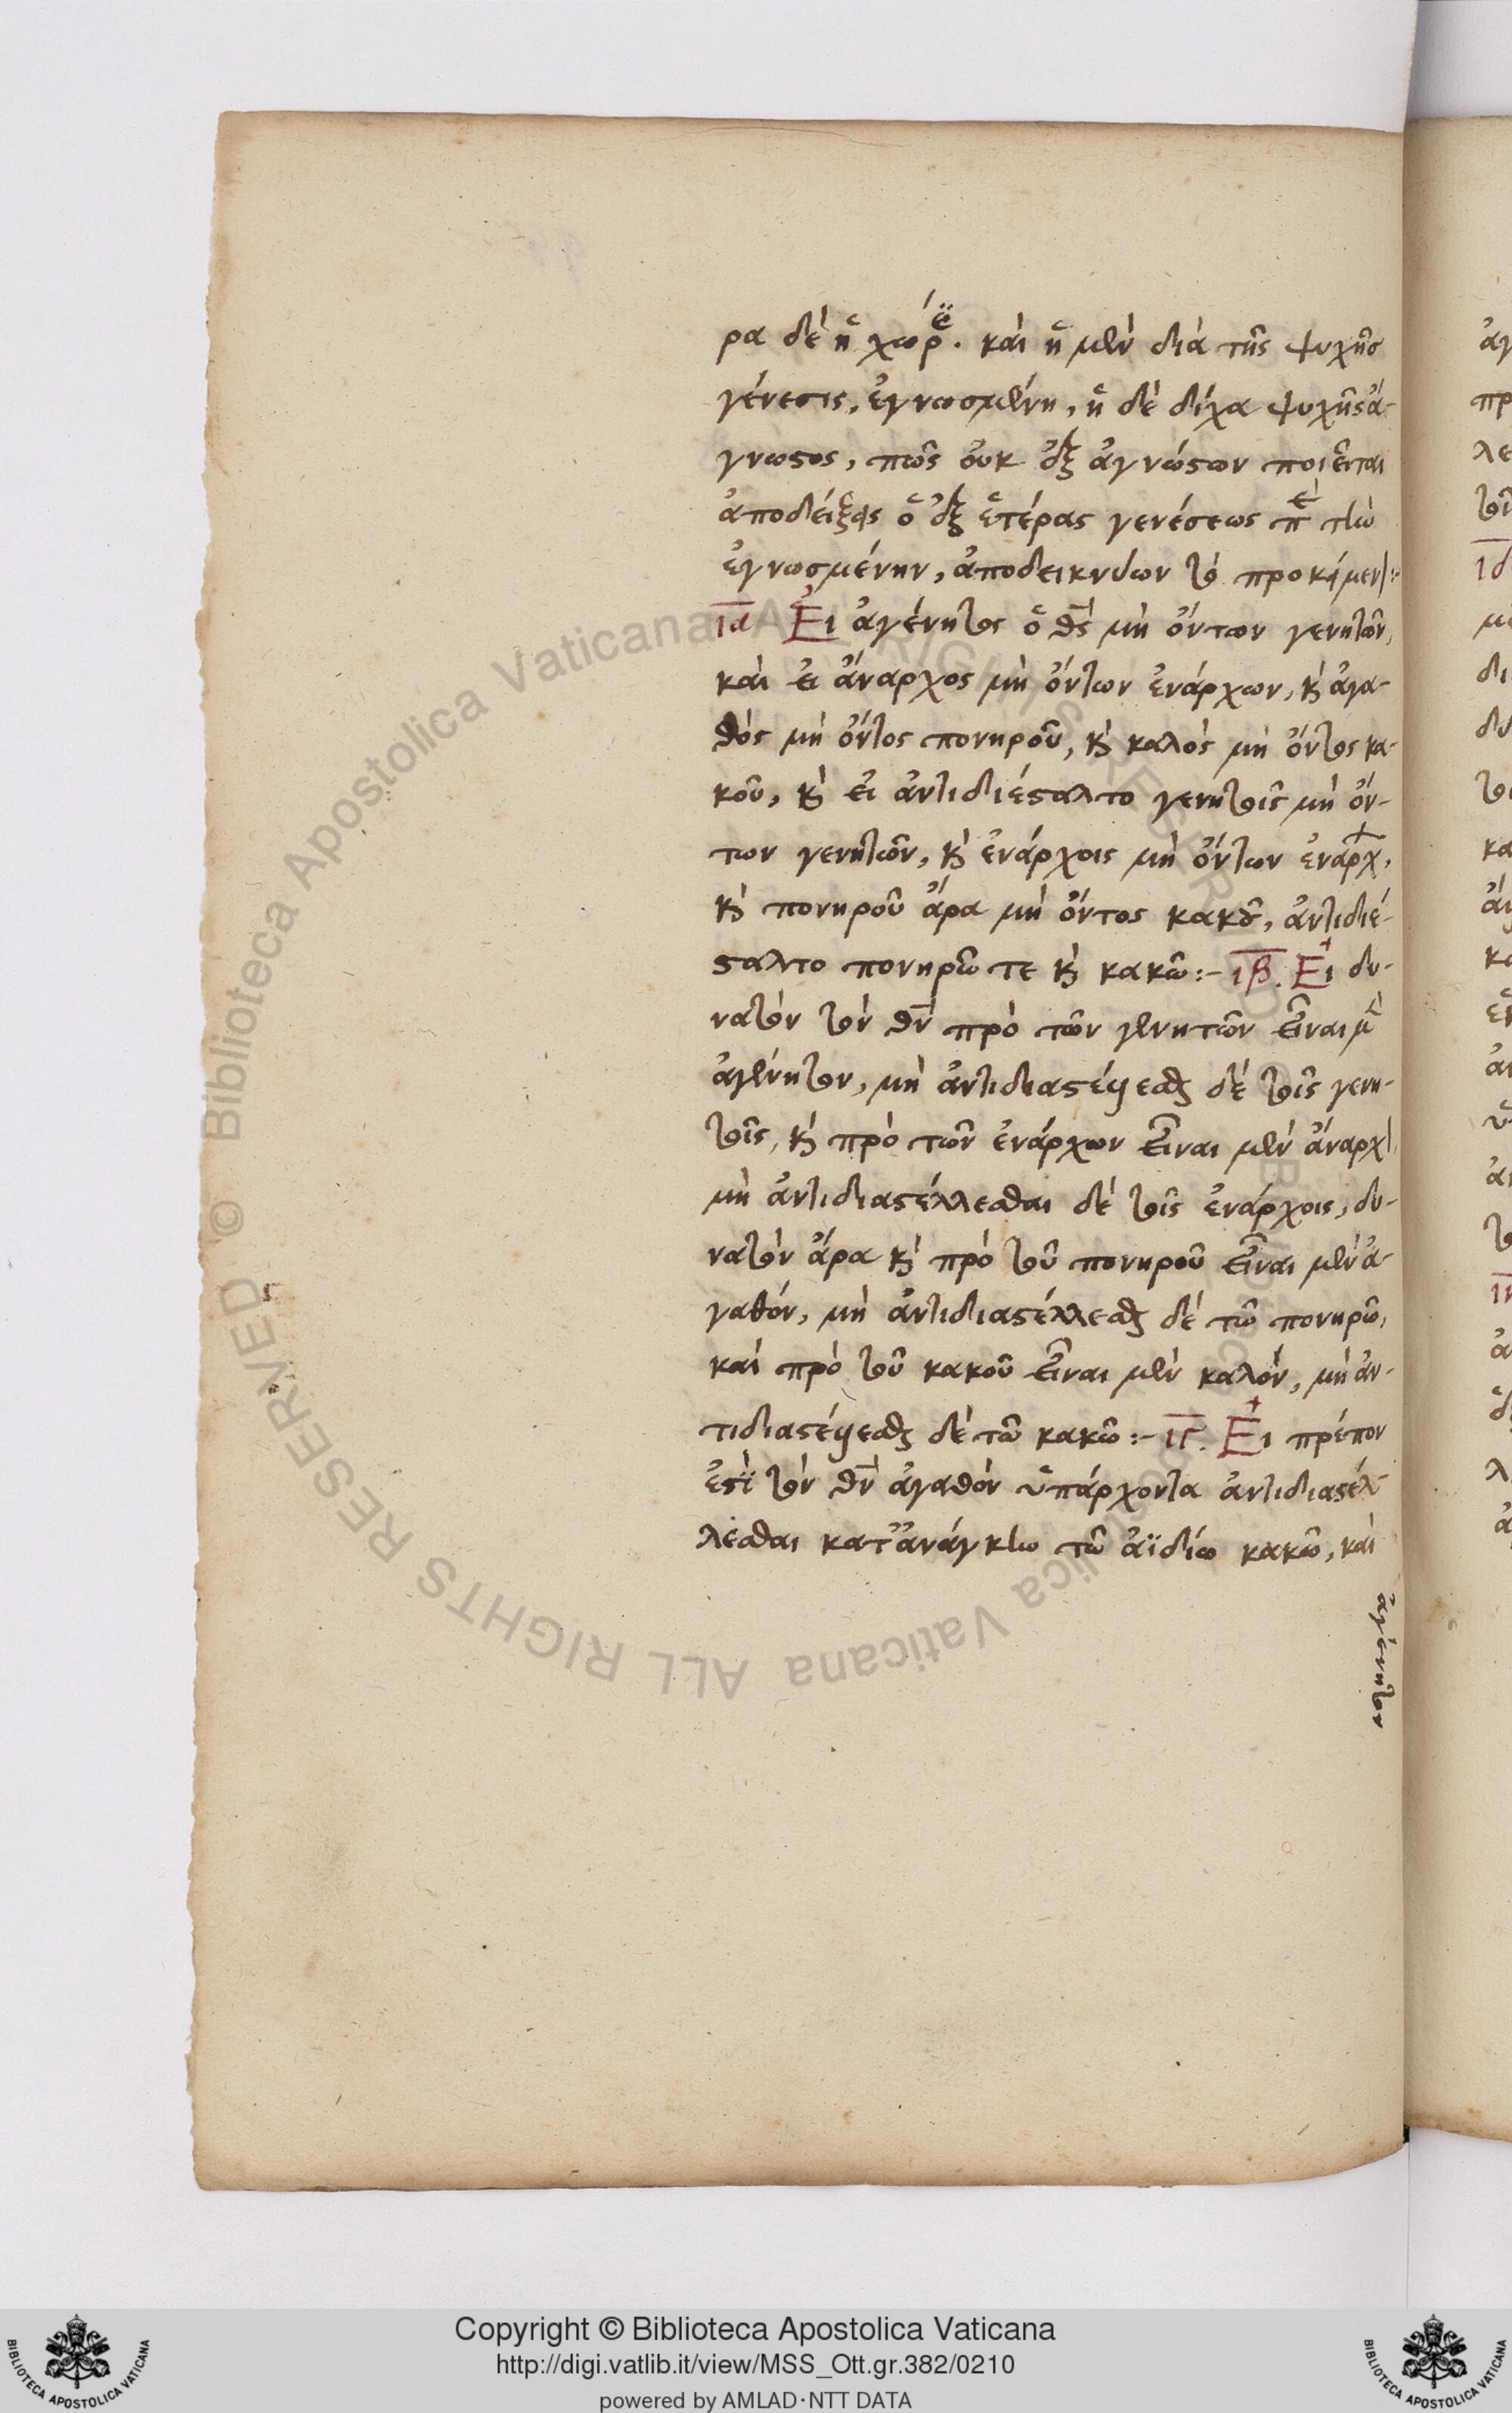 ρα δὲ ἡ χώρα. καὶ ἡ μὲν διὰ τῆς ψυχῆς
γένεσις, ἐγνωσμένη, ἡ δὲ δίχα ψυχῆς ἄ-
γνωστος, πῶς οὐκ ἐξ ἀγνώστων ποιεῖται
ἀποδείξεις ὁ ἐξ ἑτέρας γενέσεως παρὰ τὴν
ἐγνωσμένην, ἀποδεικνύων τὸ προκείμενον:
ια Εἰ ἀγένητος ὁ θς μὴ ὄντων γενητῶν,
καὶ εἰ ἄναρχος μὴ ὄντων ἐνάρχων, κὶ ἀγα-
θὸς μὴ ὄντος πονηροῦ, κὶ καλὸς μὴ ὄντος κα-
κοῦ, κὶ εἰ ἀντιδιέσταλτο γενητοῖς μὴ ὄν-
των γενητῶν, κὶ ἐνάρχοις μὴ ὄντων ἐνάρχων,
κὶ πονηροῦ ἄρα μὴ ὄντος κακοῦ, ἀντιδιέ-
σταλτο πονηρῶ τε κὶ κακῶ:- ιβ. Εἰ δυ-
νατὸν τὸν θν πρὸ τῶν γενητῶν εἶναι μὲν
ἀγένητον, μὴ ἀντιδιαστέλλεσθαι δὲ τοῖς γενη-
τοῖς, κὶ πρὸ τῶν ἐνάρχων εἶναι μὲν ἄναρχον,
μὴ ἀντιδιαστέλλεσθαι δὲ τοῖς ἐνάρχοις, δυ-
νατὸν ἄρα κὶ πρὸ τοῦ πονηροῦ εἶναι μὲν ἀ-
γαθόν, μὴ ἀντιδιαστέλλεσθαι δὲ τῶ πονηρῶ,
καὶ πρὸ τοῦ κακοῦ εἶναι μὲν καλόν, μὴ ἀν-
τιδιαστέλλεσθαι δὲ τῶ κακῶ:- ιγ. Εἰ πρέπον
ἐστὶ τὸν θν ἀγαθὸν ὑπάρχοντα ἀντιδιαστέλ-
λεσθαι κατ' ἀνάγκην τῶ ἀϊδίω κακῶ, καὶ
ἀγένητον
Copyright © Biblioteca Apostolica Vaticana
http://digi.vatlib.it/view/MSS_Ott.gr.382/0210
powered by AMLAD·NTT DATA
BIBLIOTECA APOSTOLICA VATICANA
BIBLIOTECA APOSTOLICA VATICANA